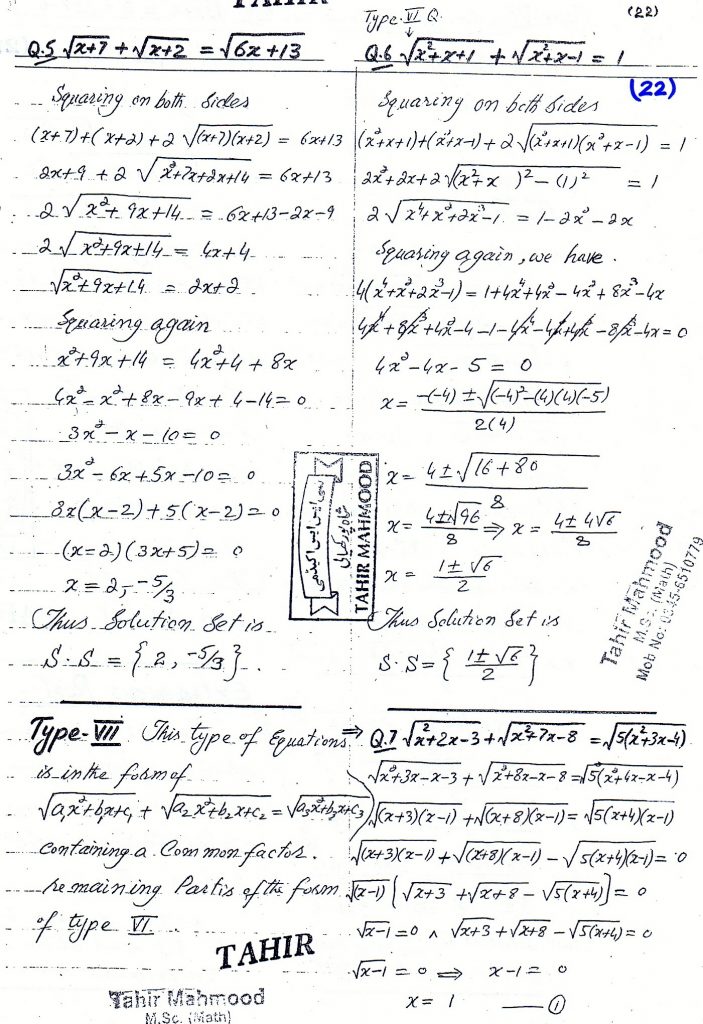 TAHIR
Type-VI Q.
(22)
Q.5 √(x+7) + √(x+2) = √(6x+13)
Squaring on both sides
(x+7)+(x+2)+2 √((x+7)(x+2)) = 6x+13
2x+9 + 2 √(x²+7x+2x+14) = 6x+13
2 √(x²+9x+14) = 6x+13-2x-9
2 √(x²+9x+14) = 4x+4
√(x²+9x+14) = 2x+2
Squaring again
x²+9x+14 = 4x²+4+8x
4x²-x²+8x-9x+4-14=0
3x²-x-10=0
3x²-6x+5x-10=0
3x(x-2)+5(x-2)=0
(x=2)(3x+5)=0
x=2, -5/3
Thus Solution Set is
S.S = {2, -5/3}.
Q.6 √(x²+x+1) + √(x²+x-1) = 1
(22)
Squaring on both sides
(x²+x+1)+(x²+x-1)+2√((x²+x+1)(x²+x-1)) = 1
2x²+2x+2√((x²+x)²-(1)²) = 1
2√(x⁴+x²+2x³-1) = 1-2x²-2x
Squaring again, we have.
4(x⁴+x²+2x³-1) = 1+4x⁴+4x²-4x²+8x³-4x
4x⁴+8x³+4x²-4-1-4x⁴-4x²+4x²-8x³-4x=0
4x²-4x-5=0
x = (-(-4) ± √((-4)²-(4)(4)(-5)))/2(4)
x = (4±√(16+80))/8
x = (4±√96)/8 ⇒ x = (4±4√6)/8
x = (1±√6)/2
Thus Solution Set is
S.S = {(1±√6)/2}
سی ایس ایس اکیڈمی
TAHIR MAHMOOD
Tahir Mahmood
M.Sc. (Math)
Mob No: 0345-6510779
Type-VII This type of Equations
is in the form of
√(a₁x²+b₁x+c₁) + √(a₂x²+b₂x+c₂) = √(a₃x²+b₃x+c₃)
containing a Common factor.
remaining Part is of the form
of type VI
⇒ Q.7 √(x²+2x-3) + √(x²+7x-8) = √(5(x²+3x-4))
√(x²+3x-x-3) + √(x²+8x-x-8) = √(5(x²+4x-x-4))
√((x+3)(x-1)) + √((x+8)(x-1)) = √(5(x+4)(x-1))
√((x+3)(x-1)) + √((x+8)(x-1)) - √(5(x+4)(x-1)) = 0
√(x-1) {√(x+3) + √(x+8) - √(5(x+4))} = 0
√(x-1) = 0 ∧ √(x+3) + √(x+8) - √(5(x+4)) = 0
√(x-1) = 0 ⇒ x-1 = 0
x = 1 —— ①
TAHIR
Tahir Mahmood
M.Sc. (Math)